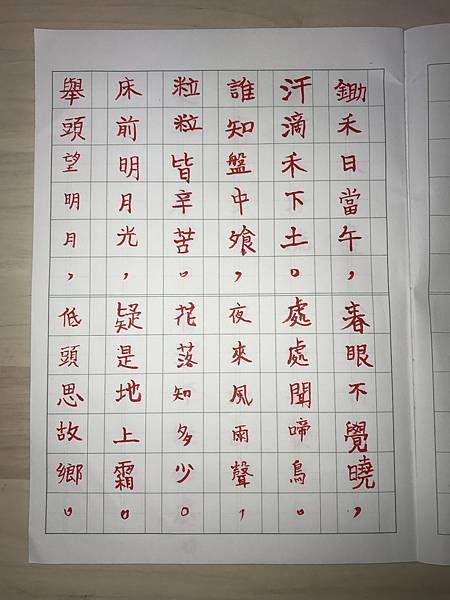 鋤禾日當午，春眠不覺曉，
汗滴禾下土。處處聞啼鳥。
誰知盤中飧，夜來風雨聲，
粒粒皆辛苦。花落知多少。
床前明月光，疑是地上霜。
舉頭望明月，低頭思故鄉。